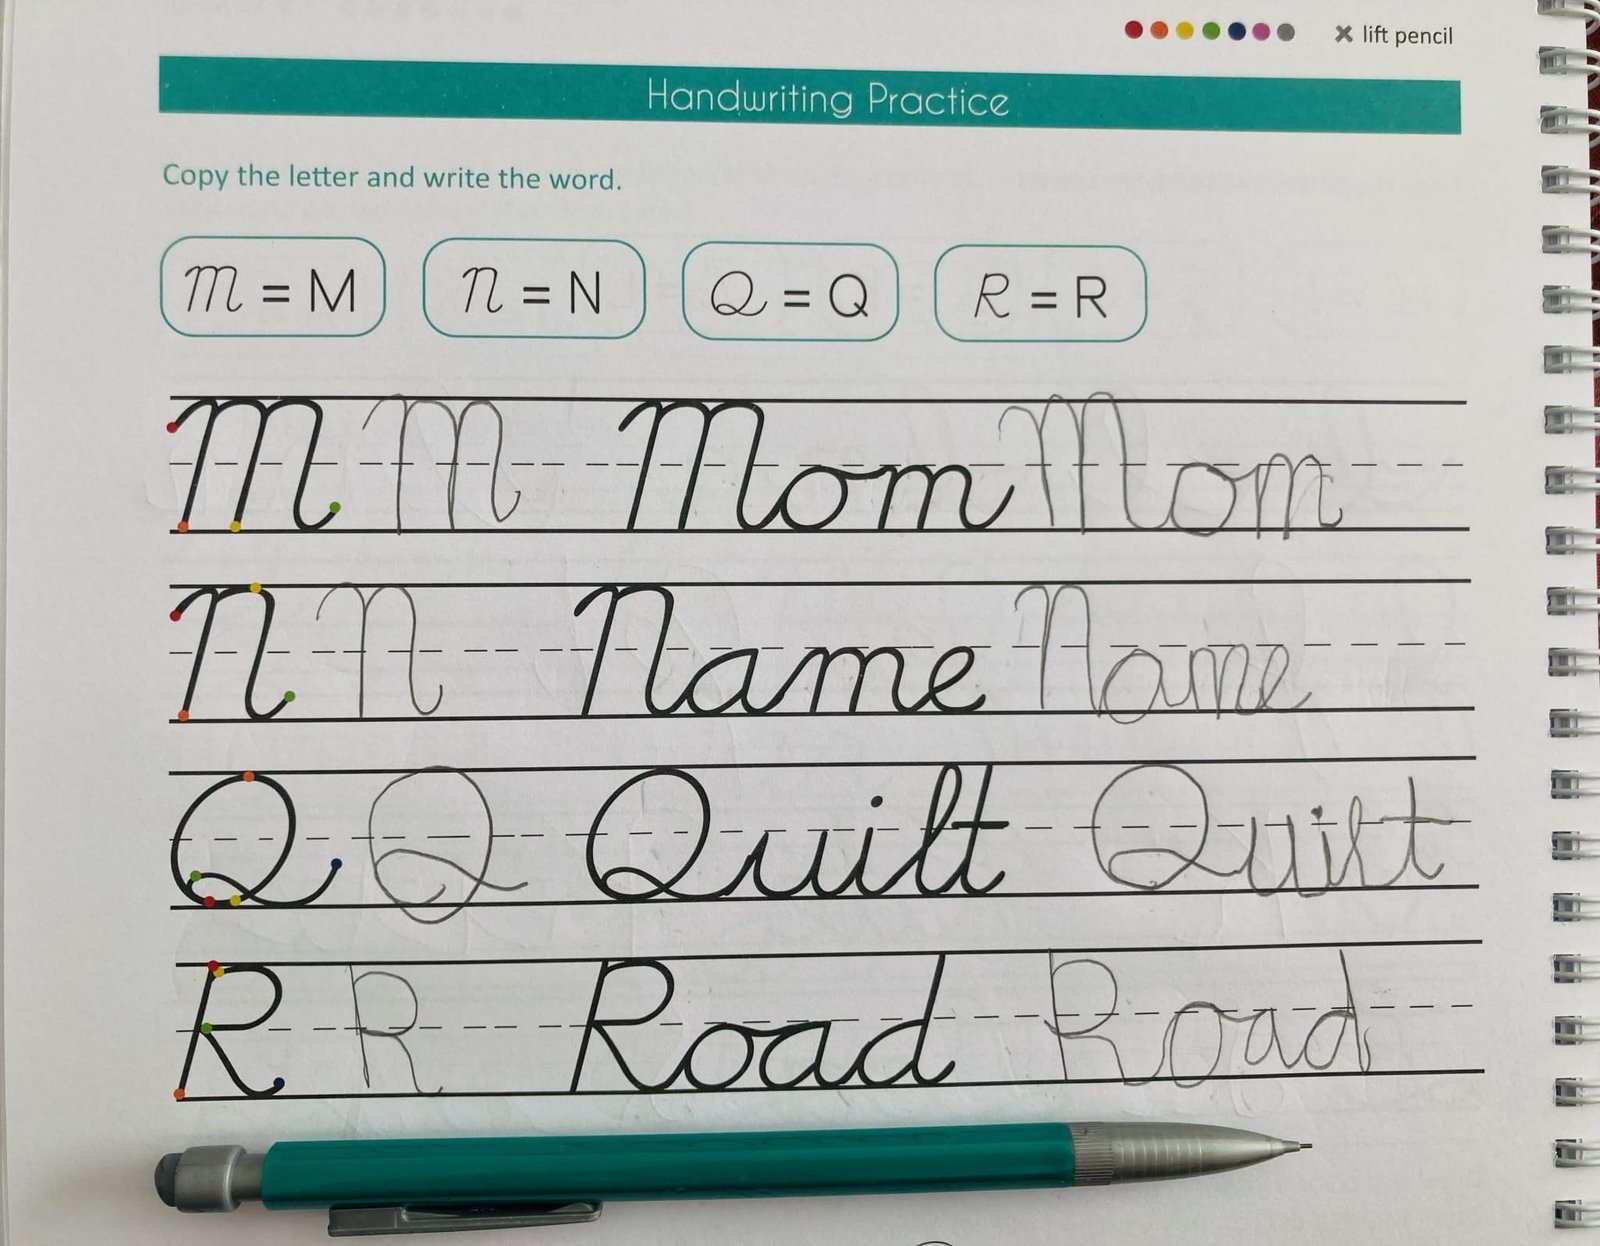 × lift pencil
Handwriting Practice
Copy the letter and write the word.
M = M N = N Q = Q R = R
M M Mom Mom
N N Name Name
Q Q Quilt Quilt
R R Road Road